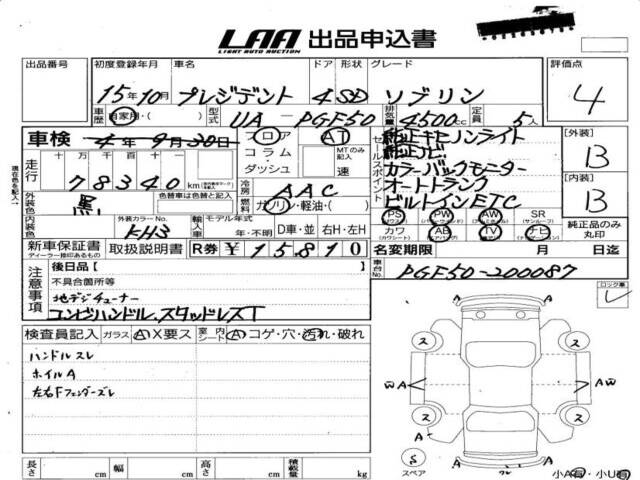 LAA 出品申込書
LIGHT AUTO AUCTION
出品番号 初度登録年月 車名 ドア 形状 グレード 評価点
15年10月 プレジデント 4 SD ソブリン 4
車歴 自家用・( ) 型式 UA - PGF50 排気量 4500cc 定員 5人
車検 4年9月30日 フロア AT
コラム MTのみ記入
ダッシュ 速
走行 十万 万 千 百 十 一
78340 km
冷房 AAC
燃料 ガソリン・軽油・( )
セールスポイント
純正キセノンライト
純正ナビ
カラーバックモニター
オートトランク
ビルトインETC
[外装] B
[内装] B
外装色 黒 色替車は色替と記入
内装色 外装カラーNo. KH3
輸入車 モデル年式 年・不明 D車・並 右H・左H
PS PW AW SR (サンルーフ)
カワ (カワシート) AB (エアバッグ) TV ナビ
純正品のみ丸印
新車保証書 取扱説明書 R券 ¥15810
ディーラー捺印あるもの
名変期限 月 日迄
車台No. PGF50-200087
注意事項
後日品 [ ]
不具合箇所等
地デジチューナー
コンビハンドル、スタッドレスT
ロック車
検査員記入 ガラス A X要ス 室内シート A コゲ・穴・汚れ・破れ
ハンドルスレ
ホイルA
左右Fフェンダーズレ
A A
ス ス
W A A W
ス ス
S
スペア
長さ cm 幅 cm 高さ cm 積載量 kg
小A有・小U有
現在色を記入